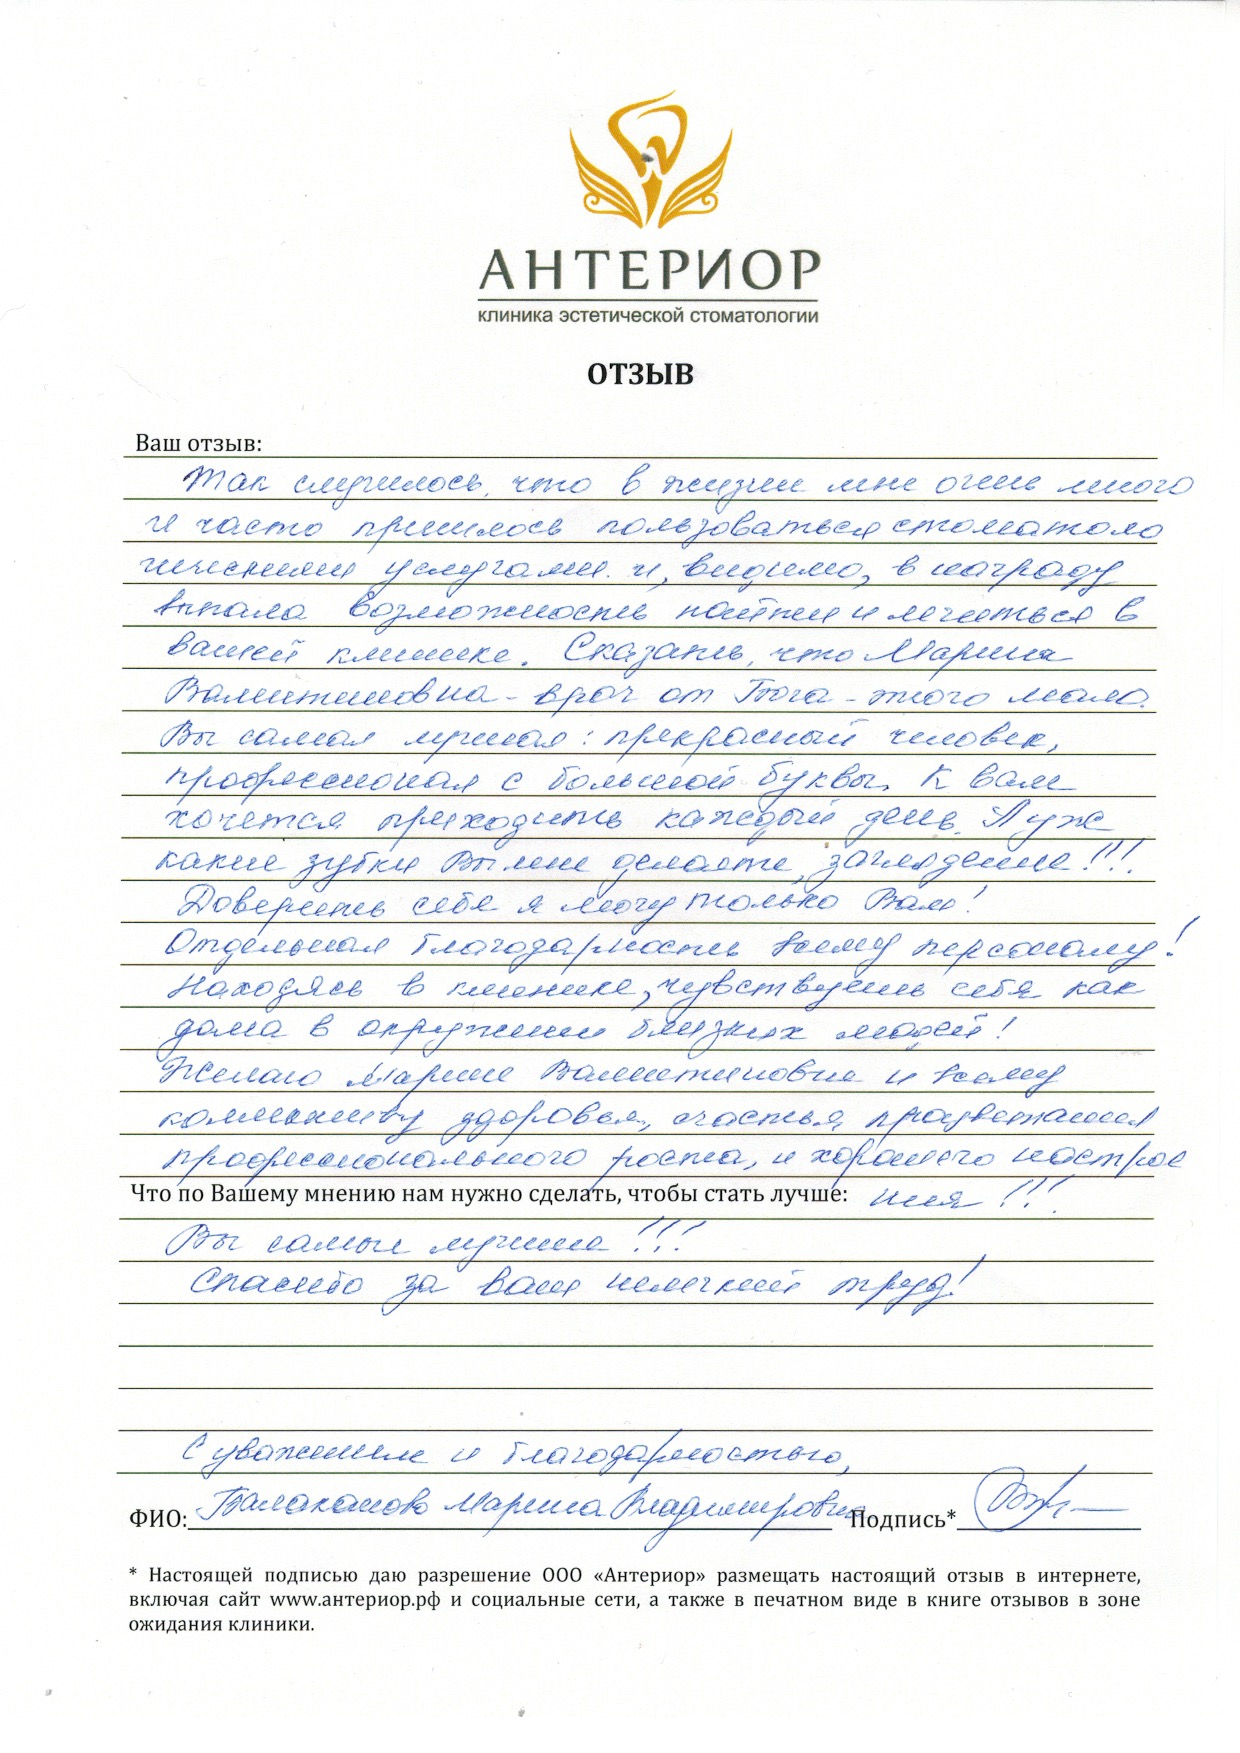 АНТЕРИОР
клиника эстетической стоматологии
ОТЗЫВ
Ваш отзыв:
Так случилось, что в жизни мне очень много
и часто пришлось пользоваться стоматоло
гическими услугами. и, видимо, в награду
выпала возможность найти и лечиться в
вашей клинике. Сказать, что Марина
Валентиновна - врач от Бога - этого мало.
Вы самая лучшая: прекрасный человек,
профессионал с большой буквы. К вам
хочется приходить каждый день. А уж
какие зубки Вы мне делаете, загляденье!!!
Доверить себя я могу только Вам!
Отдельная благодарность всему персоналу!
Находясь в клинике, чувствуешь себя как
дома в окружении близких людей!
Желаю Марине Валентиновне и всему
коллективу здоровья, счастья, процветания
профессионального роста, и хорошего настрое
Что по Вашему мнению нам нужно сделать, чтобы стать лучше: ния!!!
Вы самые лучшие!!!
Спасибо за ваш нелегкий труд!
С уважением и благодарностью,
ФИО: Балаканова Марина Владимировна Подпись*
* Настоящей подписью даю разрешение ООО «Антериор» размещать настоящий отзыв в интернете,
включая сайт www.антериор.рф и социальные сети, а также в печатном виде в книге отзывов в зоне
ожидания клиники.